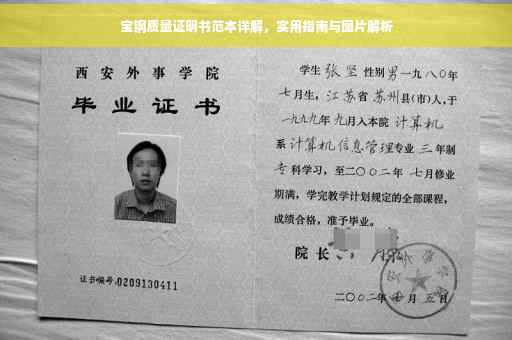 宝钢质量证明书范本详解，实用指南与图片解析
西安外事学院
毕业证书
证书编号:0209130411
学生 张坚 性别 男 一九八〇年
七月生，江苏省 苏州 县(市)人，于
一九九九年 九月入本院 计算机
系 计算机信息管理 专业 三 年制
专 科学习，至二〇〇二年 七月修业
期满，学完教学计划规定的全部课程，
成绩合格，准予毕业。
院长
二〇〇二年 月 五日